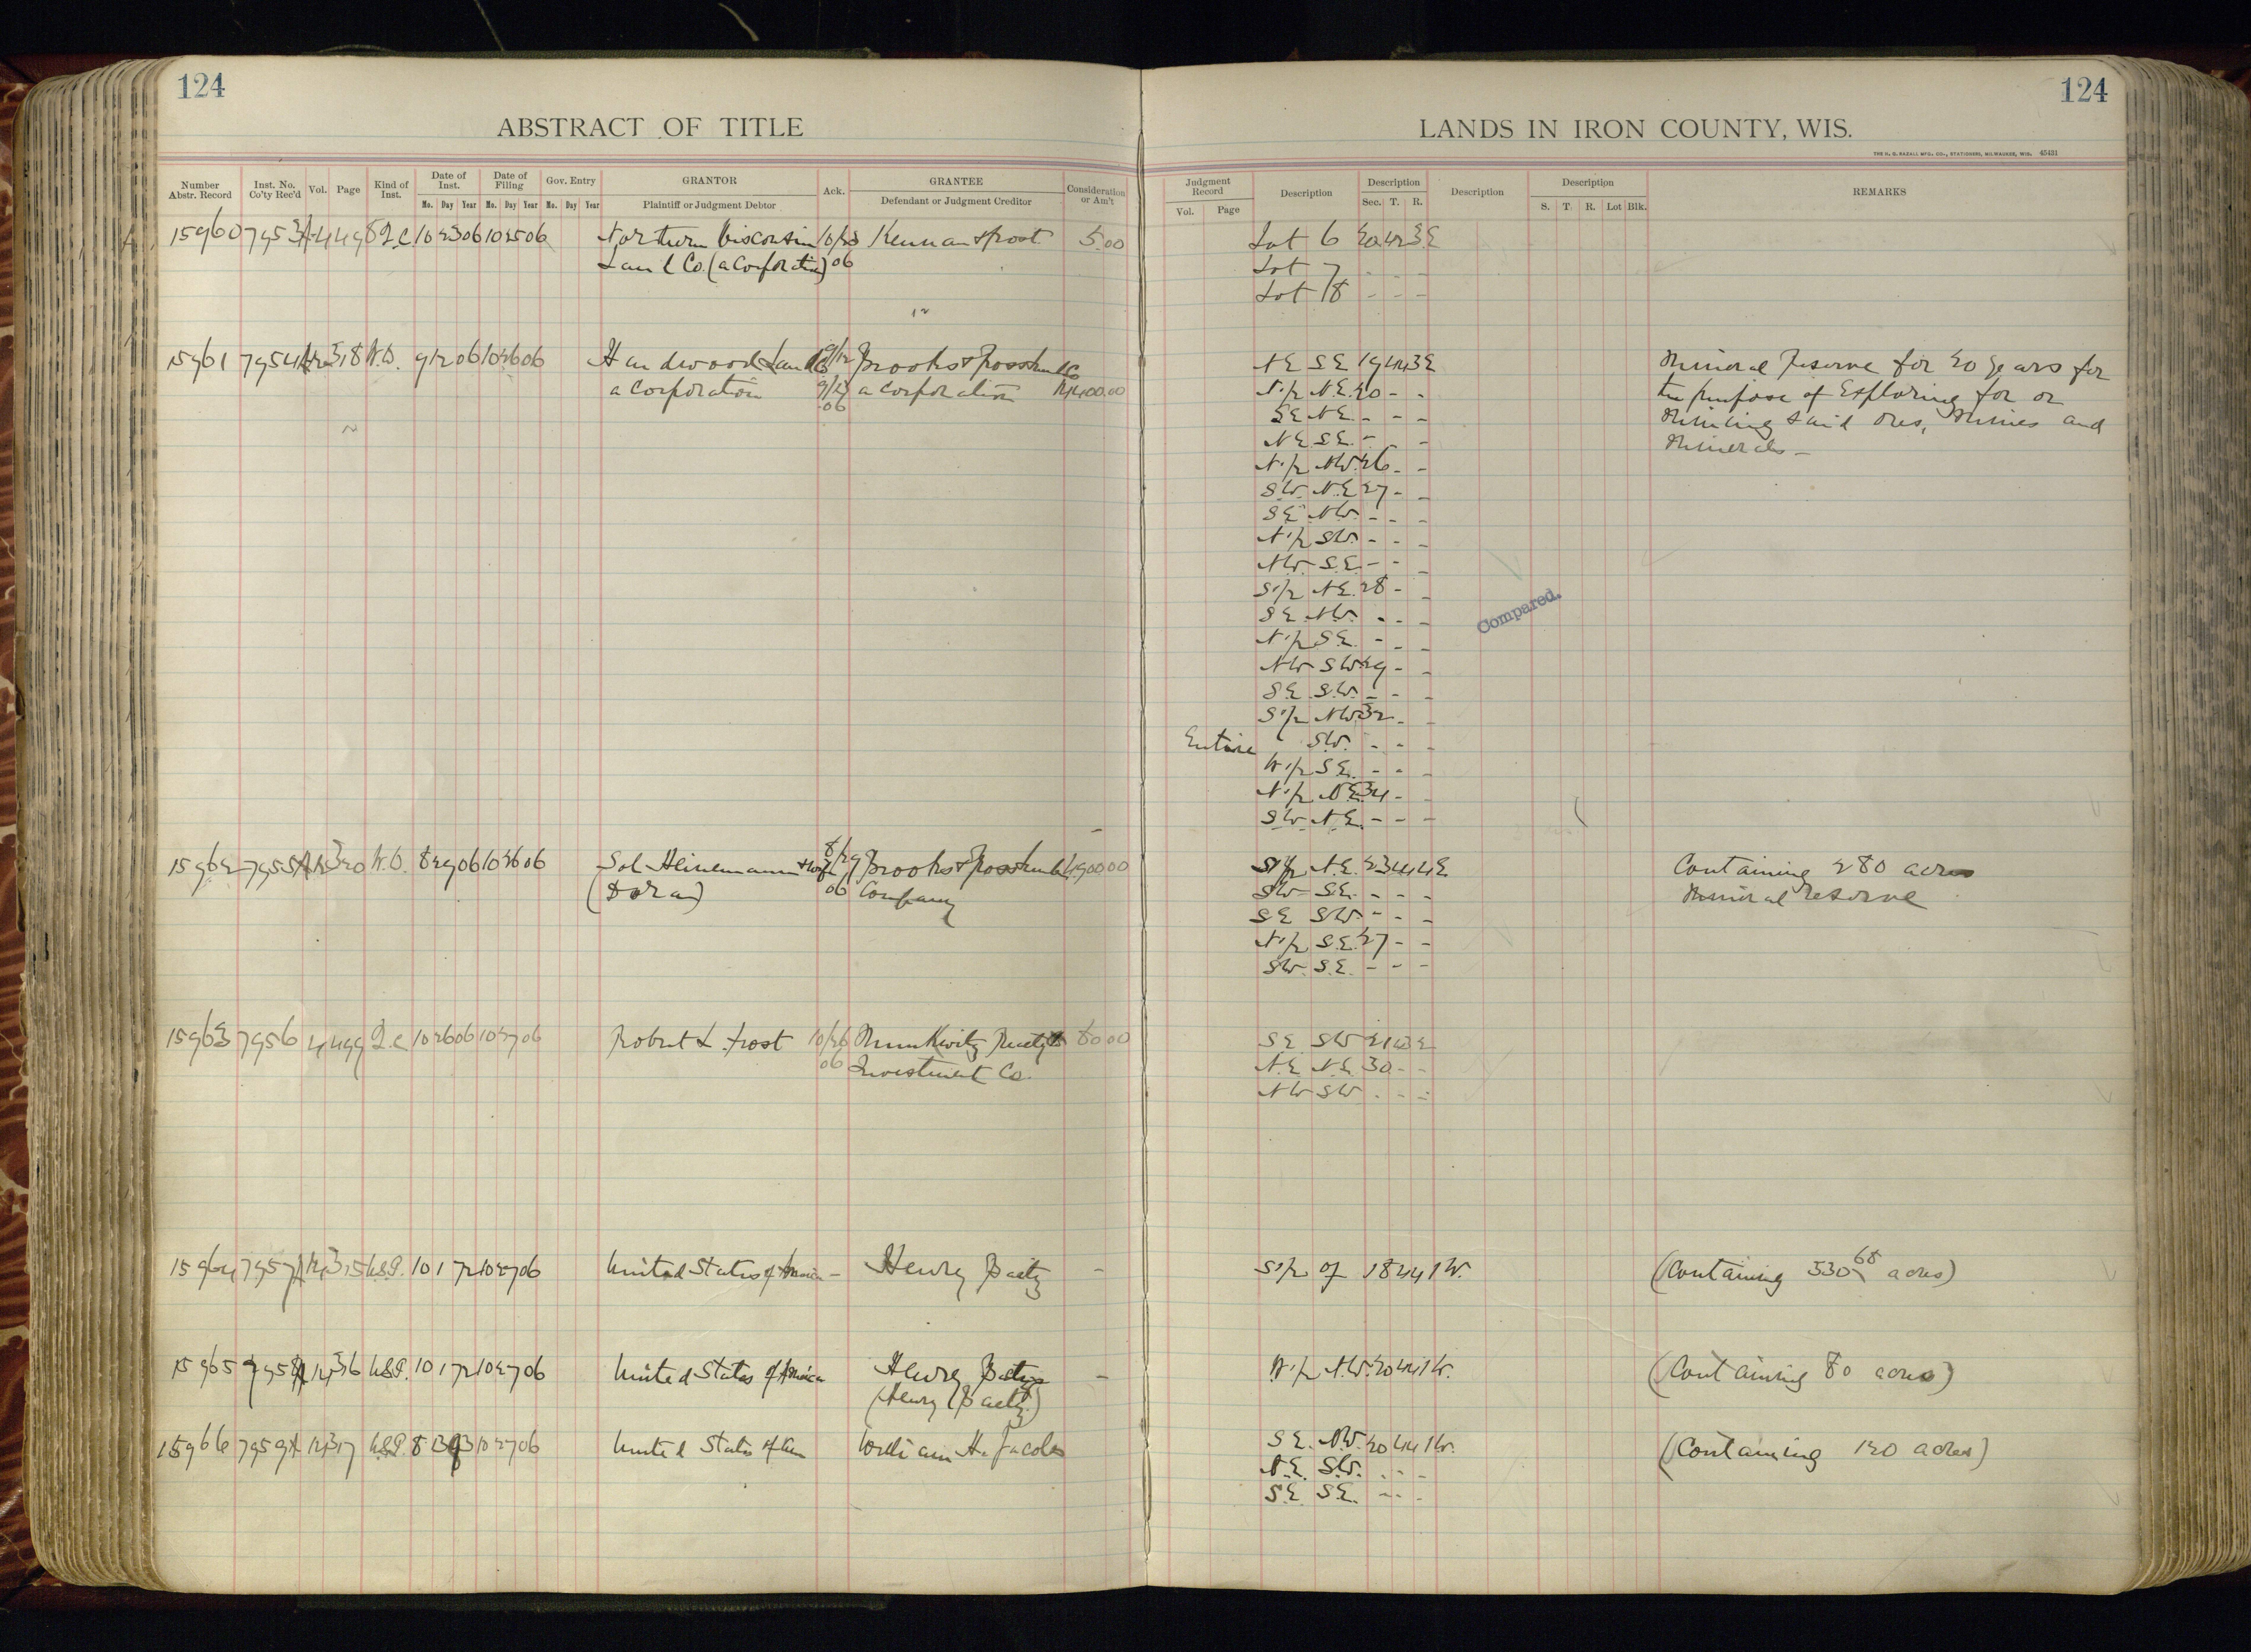 124
124
ABSTRACT OF TITLE
LANDS IN IRON COUNTY, WIS.
THE H. G. RAZALL MFG. CO., STATIONERS, MILWAUKEE, WIS. 45431
Number Abstr. Record Inst. No. Co'ty Rec'd Vol. Page Kind of Inst. Date of Inst. Date of Filing Gov. Entry GRANTOR Ack. GRANTEE Consideration or Am't
Mo. Day Year Mo. Day Year Mo. Day Year Plaintiff or Judgment Debtor Defendant or Judgment Creditor
Judgment Record Description Description Description Description REMARKS
Vol. Page Sec. T. R. S. T. R. Lot Blk.
15960 7953 4 498 Q.C 10 23 06 10 25 06 Northern Wisconsin 10/23 Kennan & Frost 5.00 Lot 6 30 42 3E
Land Co. (a Corporation) 06 Lot 7 - - -
Lot 18 - - -
15961 7954 A12 318 W.D. 9 12 06 10 26 06 Hardwood Land Co 9/12 Brooks & Ross Lumb Co N.E S.E 19 44 3E Mineral Reserve for 20 years for
a Corporation a Corporation N.1/2 N.E. 20 - - the purpose of Exploring for or
06 S.E N.E. - - - Mining said Ores, Mines and
N.E S.E. - - - Minerals -
N.1/2 N.W. 26 - -
S.W. N.E 27 - -
S.E. N.W. - - -
N.1/2 S.W. - - -
N.W. S.E. - - -
S.1/2 N.E. 28 - -
S.E. N.W. - - -
N.1/2 S.E. - - -
N.W S.W. 29 - -
S.E. S.W. - - -
S.1/2 N.W. 32 - -
Entire S.W. - - -
W.1/2 S.E. - - -
N.1/2 N.E. 34 - -
S.W. N.E. - - -
Compared.
15962 7955 A12 320 W.D. 8 29 06 10 26 06 Sol Heinemann & wife 8/29 Brooks & Ross Lumber 4900.00 S.1/2 N.E. 23 44 4E Containing 280 acres
(Dora) 06 Company S.W. S.E. - - - Mineral reserve
S.E S.W. - - -
N.1/2 S.E. 27 - -
S.W. S.E. - - -
15963 7956 4 499 Q.C 10 26 06 10 27 06 Robert L. Frost 10/26 Munkwitz Realty & 80 00 S.E. S.W 21 43 E
06 Investment Co. N.E. N.E. 30 - -
N.W S.W - - -
15964 7957 A12 315 U.S.P. 10 1 72 10 27 06 United States of America - Henry Baetz - S.1/2 of 18 44 1 W. (Containing 330 68 acres)
15965 7958 A12 316 U.S.P. 10 1 72 10 27 06 United States of America Henry Baetz - W.1/2 N.W. 20 44 1 W. (Containing 80 acres)
(Henry Baetz)
15966 7959 A12 317 U.S.P. 8 13 93 10 27 06 United States of Am William H. Jacobs S.E. N.W. 20 44 1 W. (Containing 120 acres)
N.E. S.W. - - -
S.E. S.E. - - -